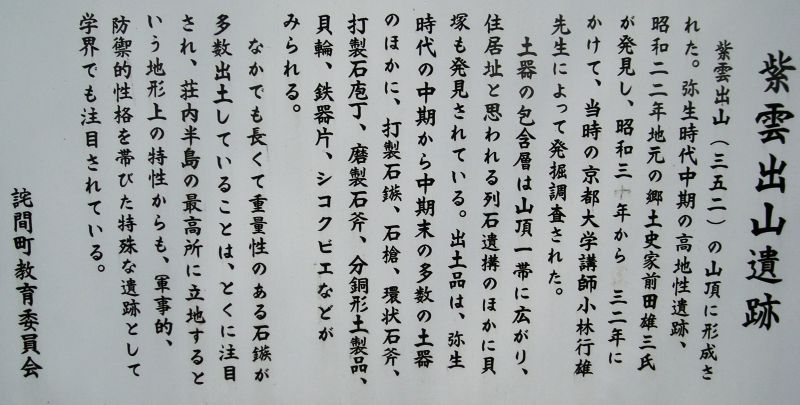 紫雲出山遺跡
紫雲出山（三五二）の山頂に形成さ
れた。弥生時代中期の高地性遺跡、
昭和二二年地元の郷土史家前田雄三氏
が発見し、昭和三十年から 三二年に
かけて、当時の京都大学講師小林行雄
先生によって発掘調査された。
土器の包含層は山頂一帯に広がり、
住居址と思われる列石遺構のほかに貝
塚も発見されている。出土品は、弥生
時代の中期から中期末の多数の土器
のほかに、打製石鏃、石槍、環状石斧、
打製石庖丁、磨製石斧、分銅形土製品、
貝輪、鉄器片、シコクビエなどが
みられる。
なかでも長くて重量性のある石鏃が
多数出土していることは、とくに注目
され、荘内半島の最高所に立地すると
いう地形上の特性からも、軍事的、
防禦的性格を帯びた特殊な遺跡として
学界でも注目されている。
詫間町教育委員会